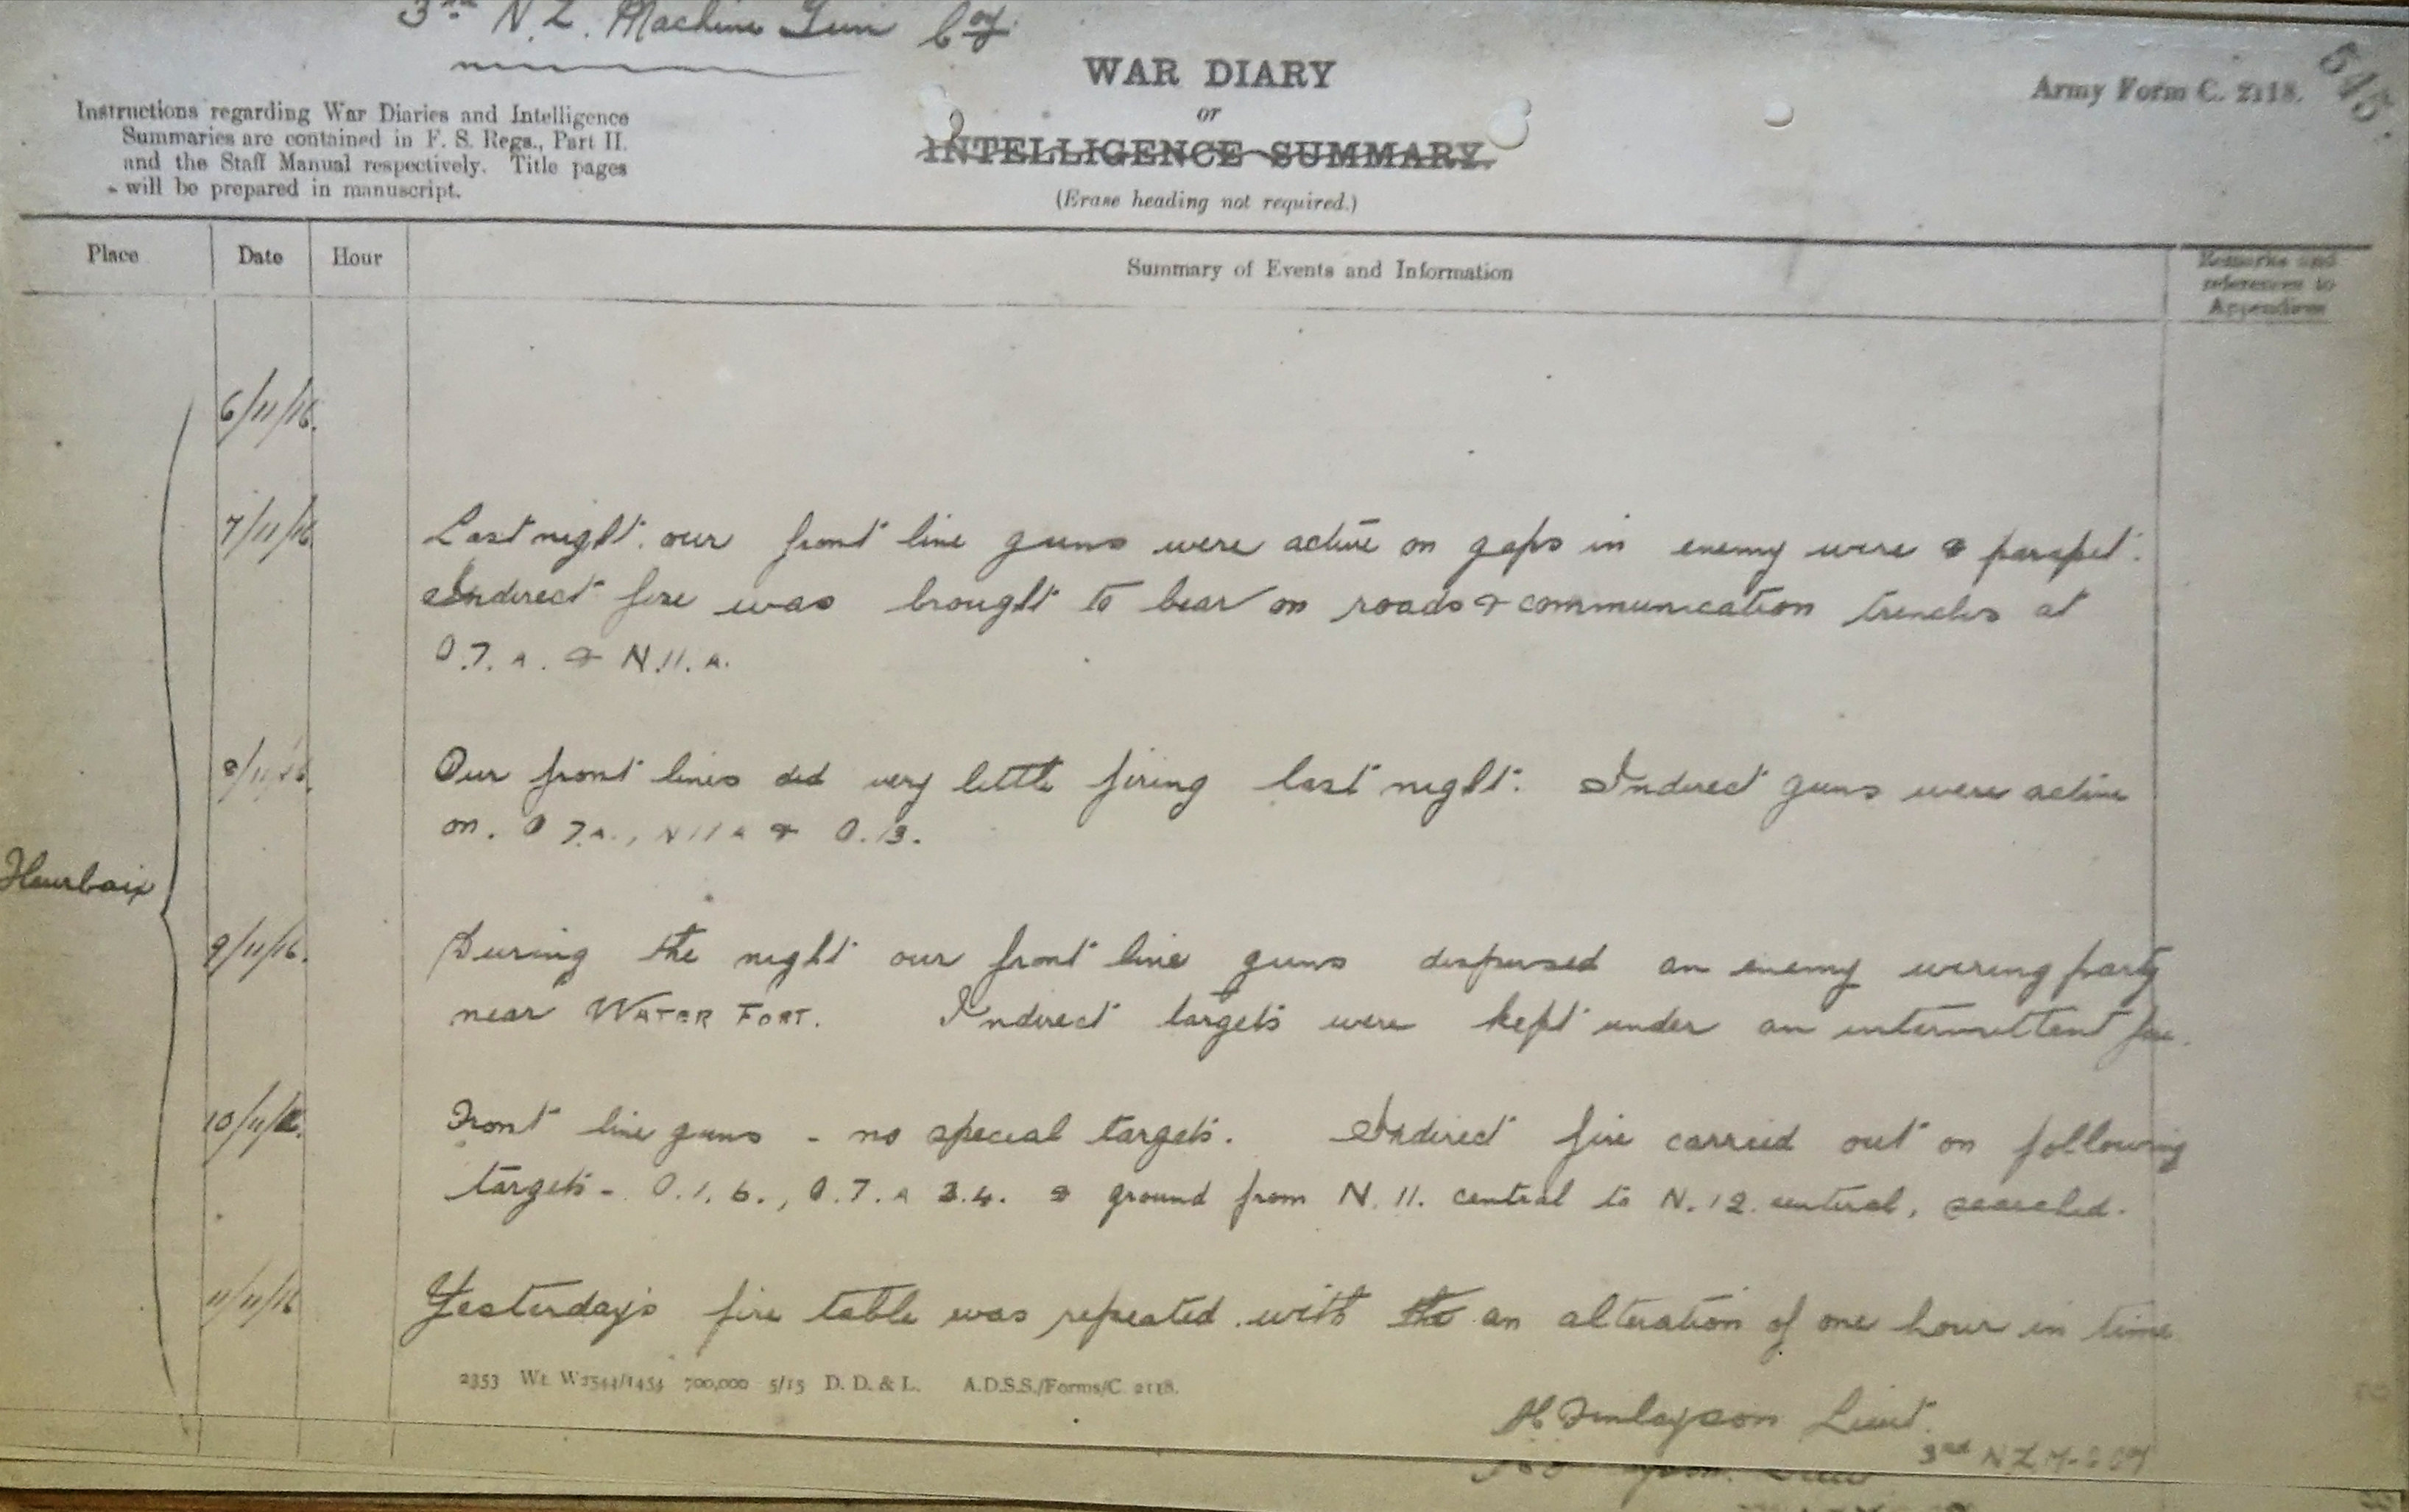 3rd N.Z. Machine Gun Coy.
WAR DIARY
or
INTELLIGENCE SUMMARY.
(Erase heading not required.)
Army Form C. 2118.
545.
Instructions regarding War Diaries and Intelligence
Summaries are contained in F. S. Regs., Part II.
and the Staff Manual respectively. Title pages
will be prepared in manuscript.
Place Date Hour Summary of Events and Information Remarks and
references to
Appendices
6/11/16.
7/11/16. Last night our front line guns were active on gaps in enemy wire & parapet.
Indirect fire was brought to bear on roads & communication trenches at
O.7.A. & N.11.A.
8/11/16. Our front lines did very little firing last night. Indirect guns were active
on. O 7.A., N11A & O.13.
Fleurbaix
9/11/16. During the night our front line guns dispersed an enemy wiring party
near WATER FORT. Indirect targets were kept under an intermittent fire.
10/11/16. Front line guns - no special targets. Indirect fire carried out on following
targets - O.1.6., O.7.A 3.4. & ground from N.11. central to N.12. central, searched.
11/11/16 Yesterday's fire table was repeated with the an alteration of one hour in time
2353 Wt. W2544/1454 700,000 5/15 D. D. & L. A.D.S.S./Forms/C. 2118.
H Finlayson Lieut.
3rd N Z M-G Coy